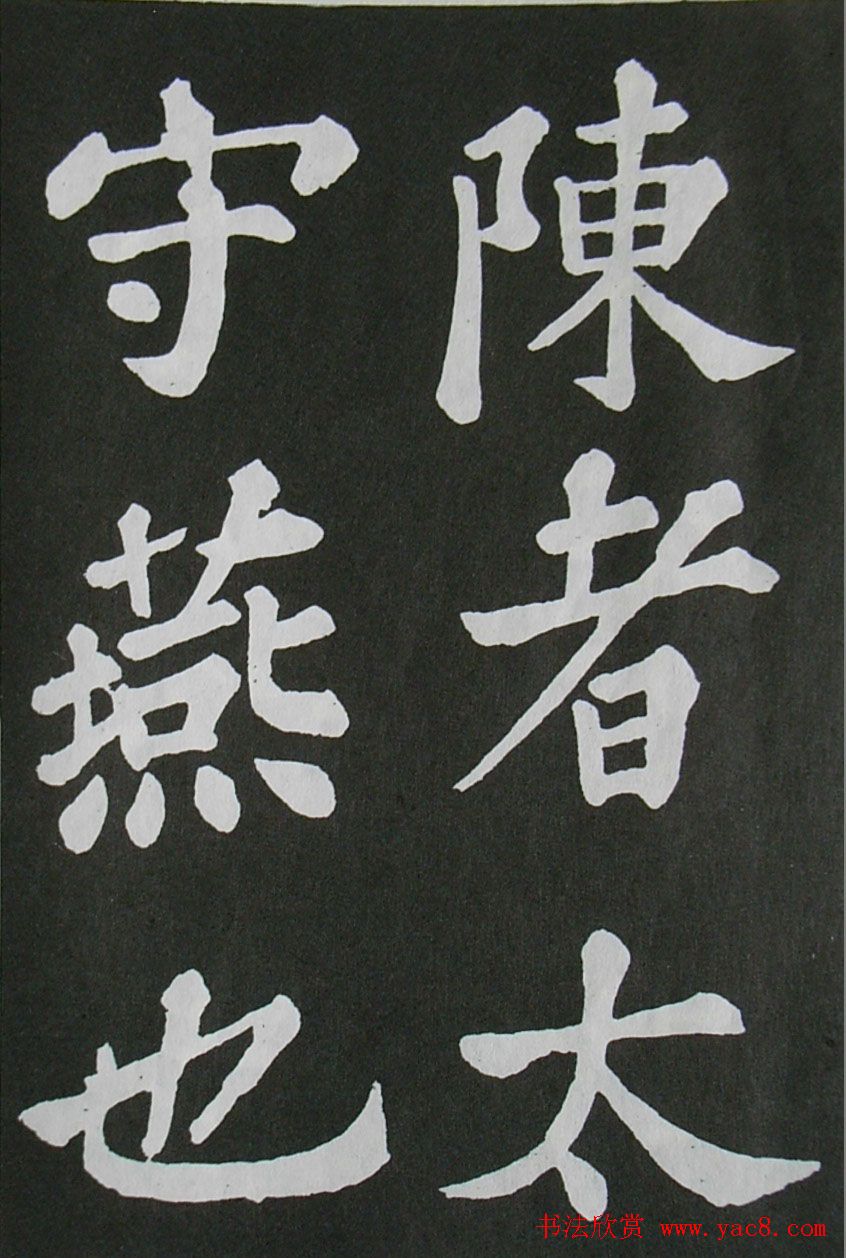 陳者太
守燕也
书法欣赏 www.yac8.com